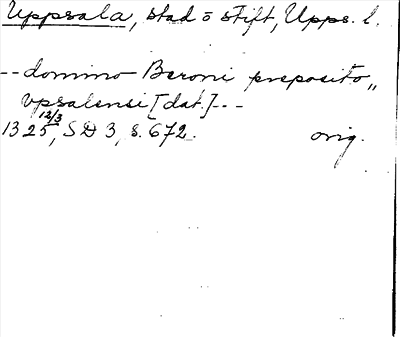 Uppsala, stad o stift, Upps. l.
-- domino Beroni preposito,,
vpsalensi [dat.] - - -
1325 12/3, SD 3, s. 672. orig.